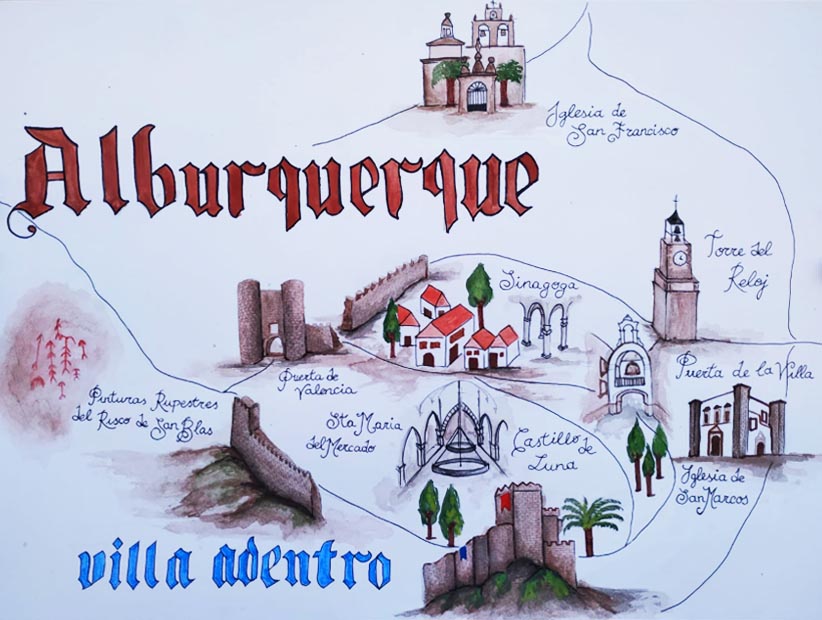 Iglesia de
San Francisco
Alburquerque
Torre del
Reloj
Sinagoga
Puerta de
Valencia
Puerta de la Villa
Pinturas Rupestres
del Risco de San Blas
Sta Maria
del Mercado
Castillo de
Luna
Iglesia de
San Marcos
villa adentro